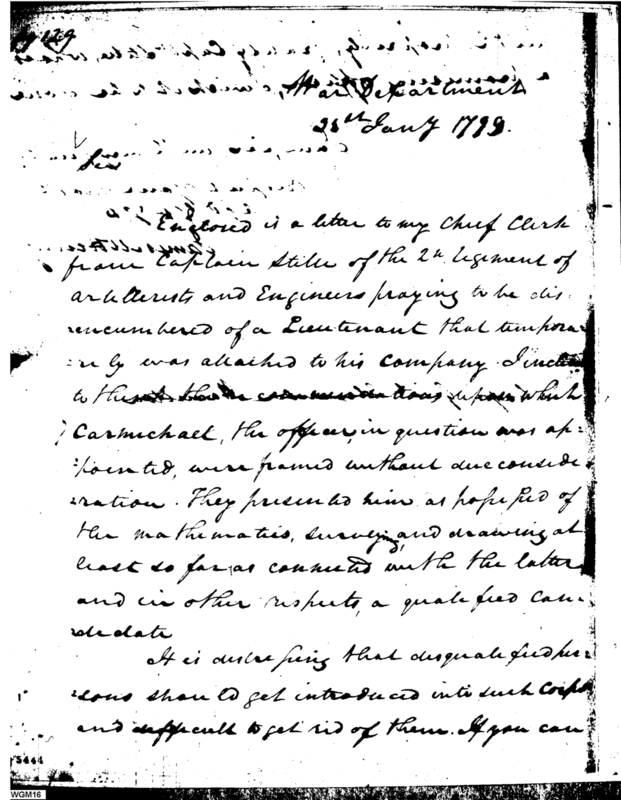 pg 129
War Department
28th Jany 1799.
Sir
Enclosed is a letter to my Chief Clerk
from Captain Stille of the 2d Regiment of
artillerists and Engineers praying to be dis:
:encumbered of a Lieutenant that tempora
:rily was attached to his company. I
to the recommendations upon which
Carmichael, the officer, in question was ap:
:pointed, were framed without due conside
:ration. They presented him as possessed of
the mathematics, surveying, and drawing at
least so far as connected with the latter
and in other respects, a qualified can:
:didate
It is distressing that disqualified per:
:sons should get introduced into such Corps
and difficult to get rid of them. If you can
5444
WGM16